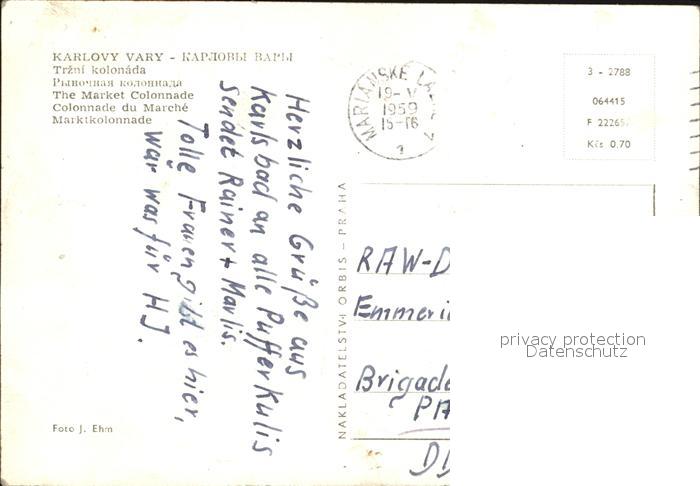 KARLOVY VARY - КАРЛОВЫ ВАРЫ
Tržní kolonáda
Рыночная колоннада
The Market Colonnade
Colonnade du Marché
Marktkolonnade
Herzliche Grüße aus
Karlsbad an alle Pufferkulis
sendet Rainer + Marlis.
Tolle Frauen gibt es hier,
war was für HJ.
Foto J. Ehm
NAKLADATELSTVÍ ORBIS – PRAHA
MARIÁNSKÉ LÁZ
19-V
1959
15-16
3 - 2788
064415
F 22265
Kčs 0,70
RAW-D
Emmeri
Brigade
PA
DD
privacy protection
Datenschutz